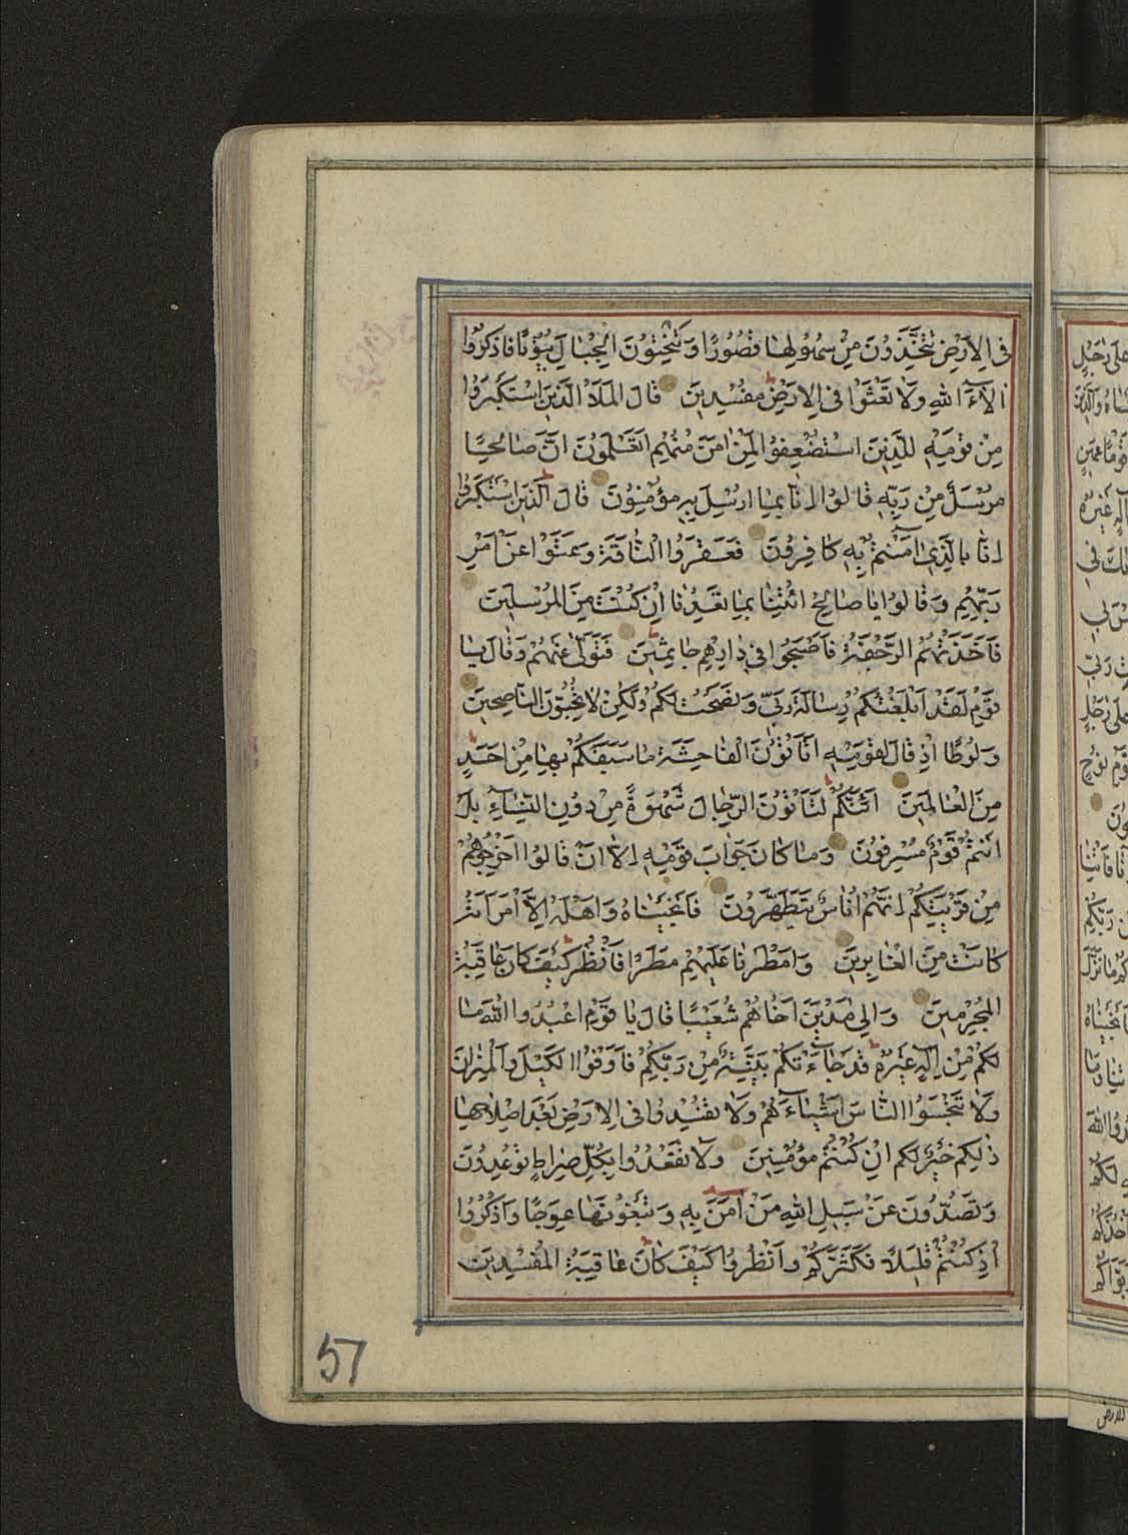 فِي الْاَرْضِ تَتَّخِذُونَ مِنْ سُهُولِهَا قُصُورًا وَتَنْحِتُونَ الْجِبَالَ بُيُوتًا فَاذْكُرُوا
اٰلَآءَ اللهِ وَلَا تَعْثَوْا فِي الْاَرْضِ مُفْسِدِينَ قَالَ الْمَلَاُ الَّذِينَ اسْتَكْبَرُوا
مِنْ قَوْمِهِ لِلَّذِينَ اسْتُضْعِفُوا لِمَنْ اٰمَنَ مِنْهُمْ اَتَعْلَمُونَ اَنَّ صَالِحًا
مُرْسَلٌ مِنْ رَبِّهِ قَالُوا اِنَّا بِمَا اُرْسِلَ بِهِ مُؤْمِنُونَ قَالَ الَّذِينَ اسْتَكْبَرُوا
اِنَّا بِالَّذِي اٰمَنْتُمْ بِهِ كَافِرُونَ فَعَقَرُوا النَّاقَةَ وَعَتَوْا عَنْ اَمْرِ
رَبِّهِمْ وَقَالُوا يَا صَالِحُ ائْتِنَا بِمَا تَعِدُنَا اِنْ كُنْتَ مِنَ الْمُرْسَلِينَ
فَاَخَذَتْهُمُ الرَّجْفَةُ فَاَصْبَحُوا فِي دَارِهِمْ جَاثِمِينَ فَتَوَلّٰى عَنْهُمْ وَقَالَ يَا
قَوْمِ لَقَدْ اَبْلَغْتُكُمْ رِسَالَةَ رَبِّي وَنَصَحْتُ لَكُمْ وَلٰكِنْ لَا تُحِبُّونَ النَّاصِحِينَ
وَلُوطًا اِذْ قَالَ لِقَوْمِهِ اَتَأْتُونَ الْفَاحِشَةَ مَا سَبَقَكُمْ بِهَا مِنْ اَحَدٍ
مِنَ الْعَالَمِينَ اَئِنَّكُمْ لَتَأْتُونَ الرِّجَالَ شَهْوَةً مِنْ دُونِ النِّسَآءِ بَلْ
اَنْتُمْ قَوْمٌ مُسْرِفُونَ وَمَا كَانَ جَوَابَ قَوْمِهِ اِلَّا اَنْ قَالُوا اَخْرِجُوهُمْ
مِنْ قَرْيَتِكُمْ اِنَّهُمْ اُنَاسٌ يَتَطَهَّرُونَ فَاَنْجَيْنَاهُ وَاَهْلَهُ اِلَّا امْرَاَتَهُ
كَانَتْ مِنَ الْغَابِرِينَ وَاَمْطَرْنَا عَلَيْهِمْ مَطَرًا فَانْظُرْ كَيْفَ كَانَ عَاقِبَةُ
الْمُجْرِمِينَ وَاِلٰى مَدْيَنَ اَخَاهُمْ شُعَيْبًا قَالَ يَا قَوْمِ اعْبُدُوا اللهَ مَا
لَكُمْ مِنْ اِلٰهٍ غَيْرُهُ قَدْ جَآءَتْكُمْ بَيِّنَةٌ مِنْ رَبِّكُمْ فَاَوْفُوا الْكَيْلَ وَالْمِيزَانَ
وَلَا تَبْخَسُوا النَّاسَ اَشْيَآءَهُمْ وَلَا تُفْسِدُوا فِي الْاَرْضِ بَعْدَ اِصْلَاحِهَا
ذٰلِكُمْ خَيْرٌ لَكُمْ اِنْ كُنْتُمْ مُؤْمِنِينَ وَلَا تَقْعُدُوا بِكُلِّ صِرَاطٍ تُوعِدُونَ
وَتَصُدُّونَ عَنْ سَبِيلِ اللهِ مَنْ اٰمَنَ بِهِ وَتَبْغُونَهَا عِوَجًا وَاذْكُرُوا
اِذْ كُنْتُمْ قَلِيلًا فَكَثَّرَكُمْ وَانْظُرُوا كَيْفَ كَانَ عَاقِبَةُ الْمُفْسِدِينَ
57